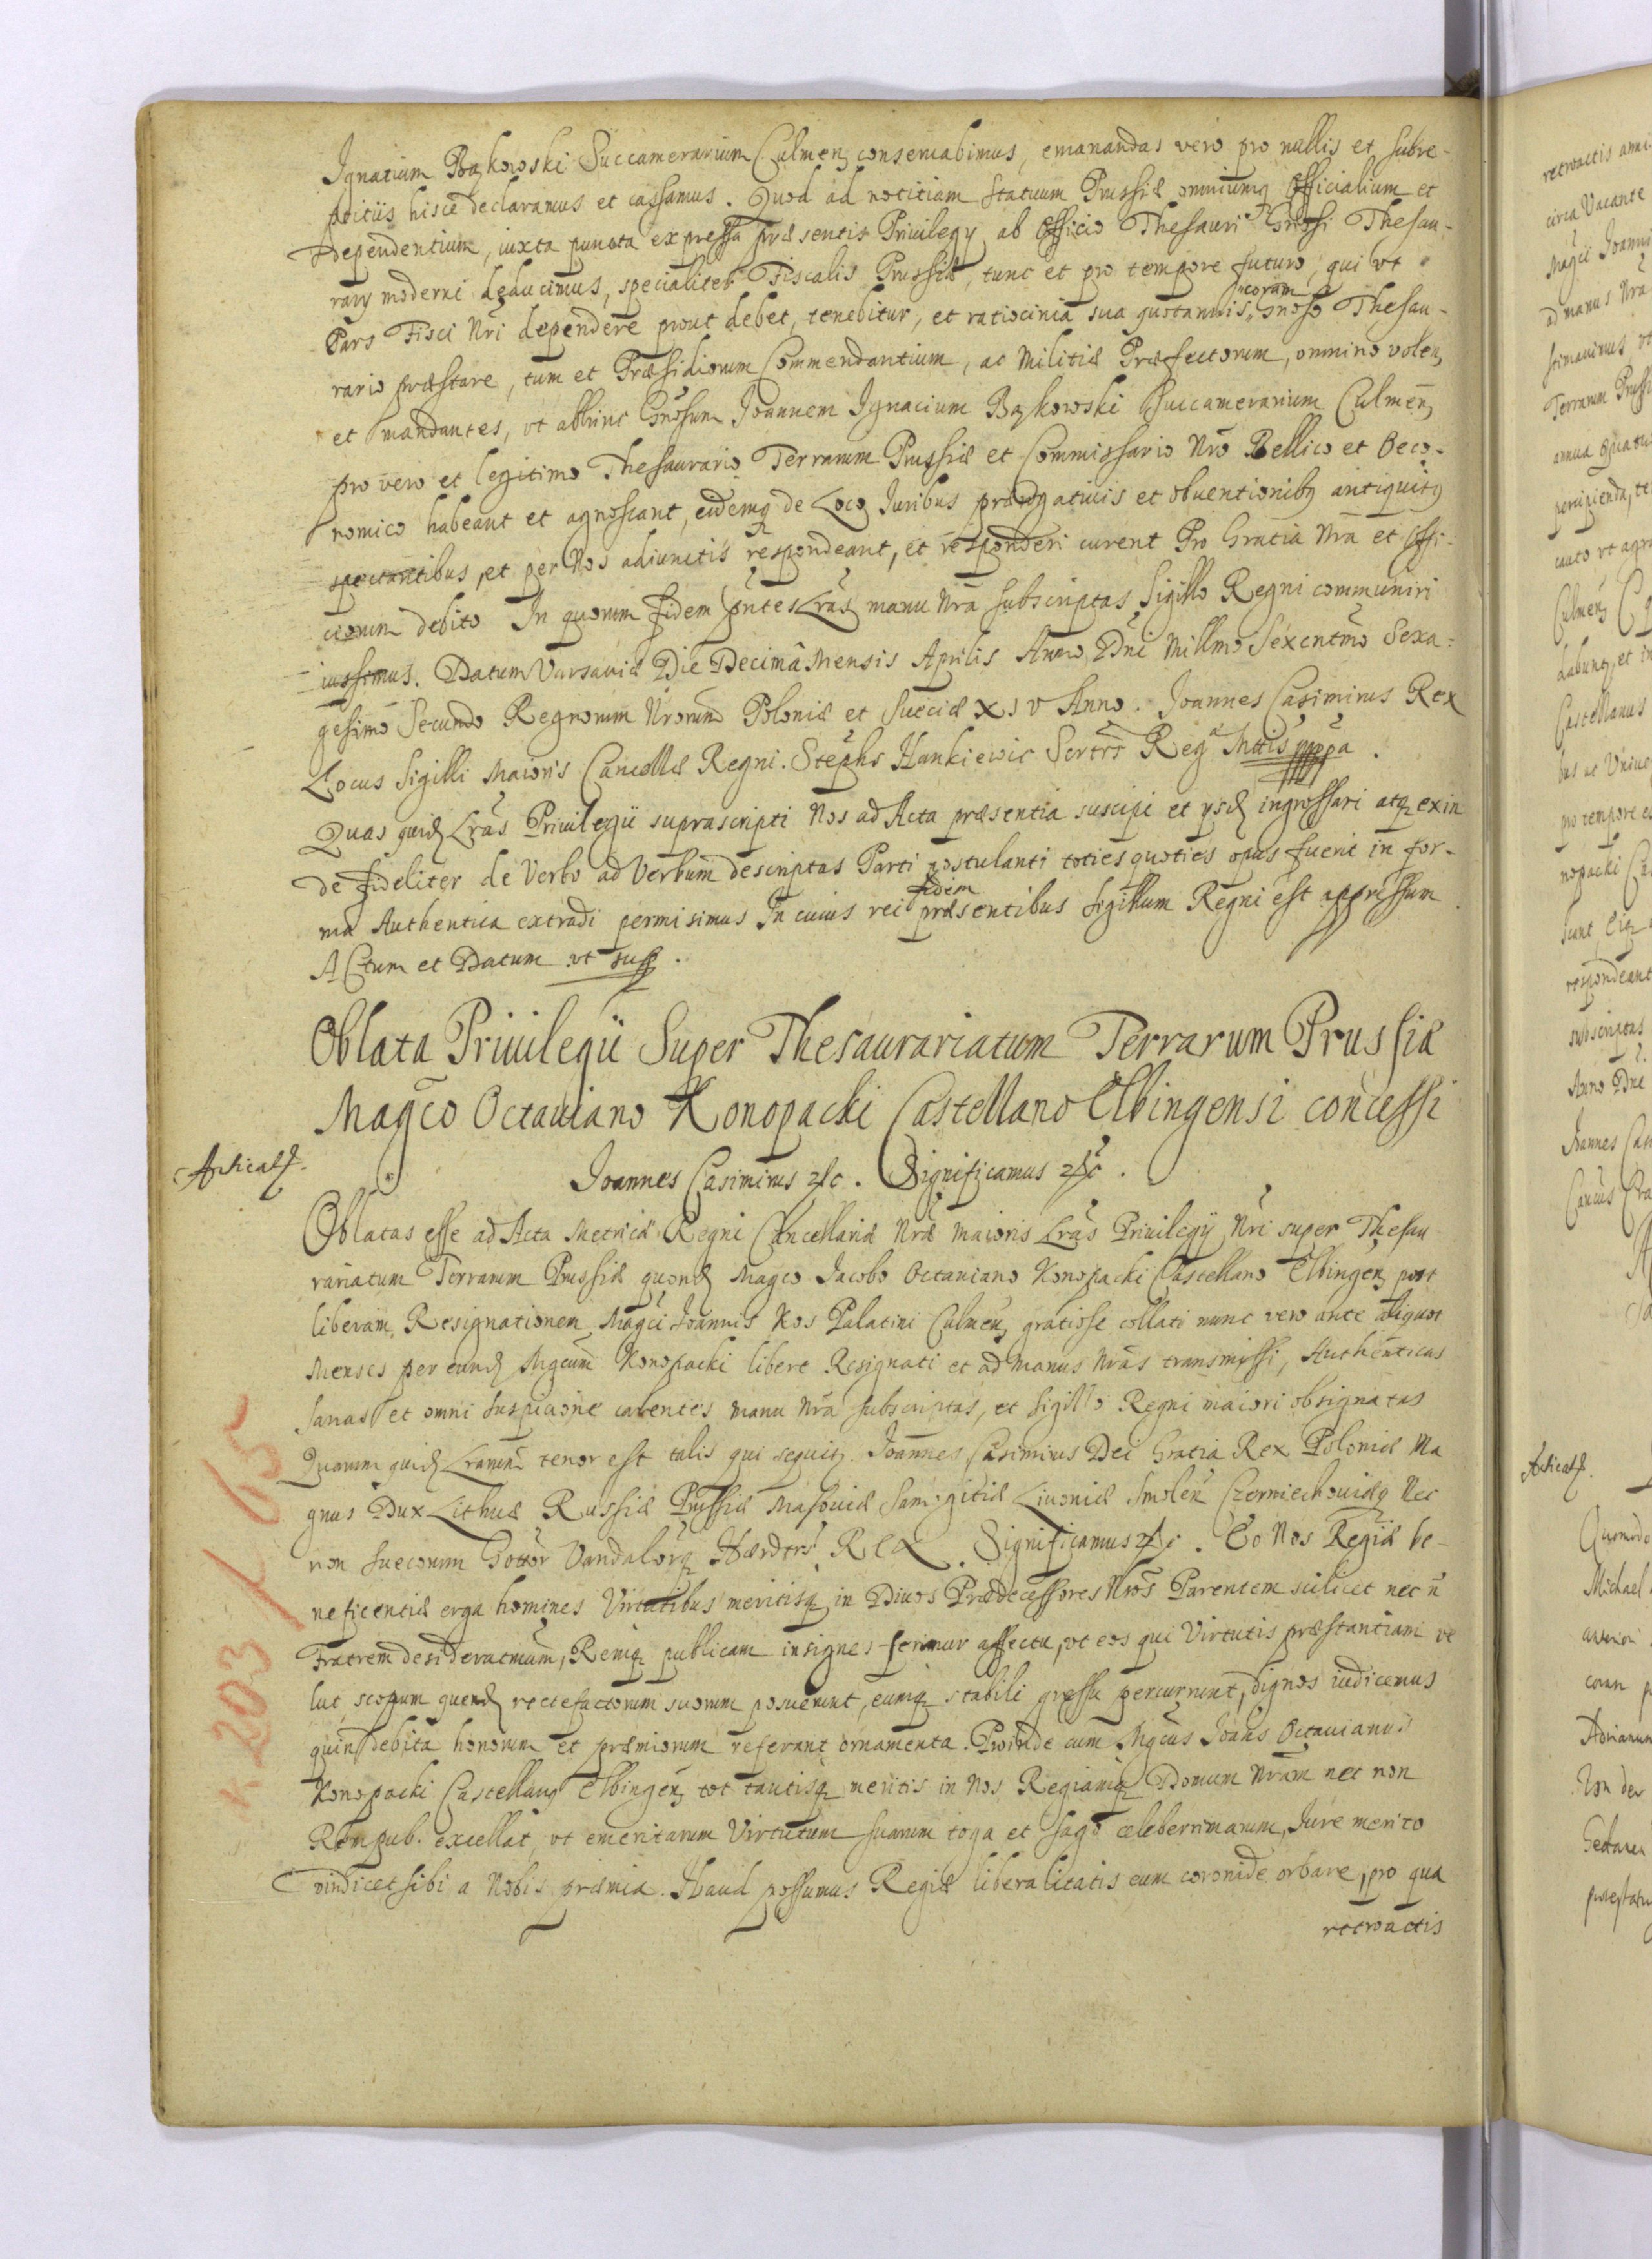 Ignatium Bąkowski Succamerarium Culmen conservabimus, emanandas vero pro nullis et subre-
ptitiis hisce declaramus et cassamus. Quod ad notitiam Statuum Prussiæ omniumq Officialium et
Dependentium, iuxta puncta expressa præsentis Privilegy ab Officio Thesauri Gnosi Thesau-
rary moderni deducimus, specialiter Fiscalis Prussiæ, tunc et pro tempore futuro, qui vt
Pars Fisci Nri dependere prout debet, tenebitur, et ratiocinia sua quotannis, coram Gnoso Thesau-
rario præstare, tum et Præsidiorum Commendantium, ac Militiæ Præfectorum, omnino volen
et mandantes, vt abhinc Gnosum Joannem Ignacium Bąkowski Succamerarium Culmen
pro vero et legitimo Thesaurario Terrarum Prussiæ et Commissario Nro Bellico et Oeco-
nomico habeant et agnoscant, eidemq de Loco Iuribus prærogativis et obventionibq antiquitq
spectantibus, et per Nos adiunctis respondeant, et responderi curent Pro Gratia Nra et Offi-
ciorum debito In quorum fidem pntes Lras manu Nra subscriptas Sigillo Regni communiri
iussimus. Datum Varsaviæ Die Decima Mensis Aprilis Anno Dni Millmo Sexcentmo Sexa-
gesimo Secundo Regnorum Nrorum Poloniæ et Sueciæ XIV Anno. Joannes Casimirus Rex
Locus Sigilli Maioris Cancellæ Regni. Stephs Hankiewic Sertrs Reg Mttis mppa.
Quas quid Lras Privilegii suprascripti Nos ad Acta præsentia suscipi et ysd ingrossari atq exin
de fideliter de Verbo ad Verbum descriptas Parti postulanti toties quoties opus fuerit in for-
ma Authentica extradi permisimus In cuius rei fidem præsentibus Sigillum Regni est appressum
Actum et Datum vt supr.
Oblata Privilegii Super Thesaurariatum Terrarum Prussiæ
Magco Octaviano Konopacki Castellano Elbingensi concessi
Joannes Casimirus etc. Significamus etc.
Oblatas esse ad Acta Metricæ Regni Cancellariæ Nræ maioris Lras Privilegÿ Nri super Thesau
rariatum Terrarum Prussiæ quond Magco Jacobo Octaviano Konopacki Castellano Elbingen post
liberam Resignationem Magci Joannis Kos Palatini Culmen gratiose collati nunc vero ante aliquot
Menses per eund Mgcum Konopacki libere Resignati et ad manus Nras transmissi, Authenticas
sanas et omni suspicione carentes manu Nra subscriptas, et Sigillo Regni maiori obsignatas
Quarum quid Lrarum tenor est talis qui sequit. Joannes Casimirus Dei Gratia Rex Poloniæ Ma
gnus Dux Lithuæ Russiæ Prussiæ Masoviæ Samogitiæ Livoniæ Smolen Czerniechoviæq Nec
non Suecorum Gottor Vandalorq Hærdtrs Rex. Significamus etc. Eo Nos Regiæ be-
neficentiæ erga homines Virtutibus meritisq in Divos Prædecessores Nros Parentem scilicet nec n
Fratrem desideratmum, Remq publicam insignes ferimur affectu, vt eos qui Virtutis præstantiam ve
lut scopum quend rectefactorum suorum posuerunt, eumq stabili gressu percurrunt, dignos iudicemus
quin debita honorum et præmiorum referant ornamenta. Proinde cum Mgcus Joans Octavianus
Konopacki Castellanq Elbingen tot tantisq meritis in Nos Regiamq Domum Nram nec non
Rempub. excellat, vt emeritarum Virtutum suarum toga et sago celeberrimarum, Iure merito
vindicet sibi a Nobis præmia. Haud possumus Regiæ liberalitatis eum coronide orbare, pro qua
retroactis
K 203 / 65